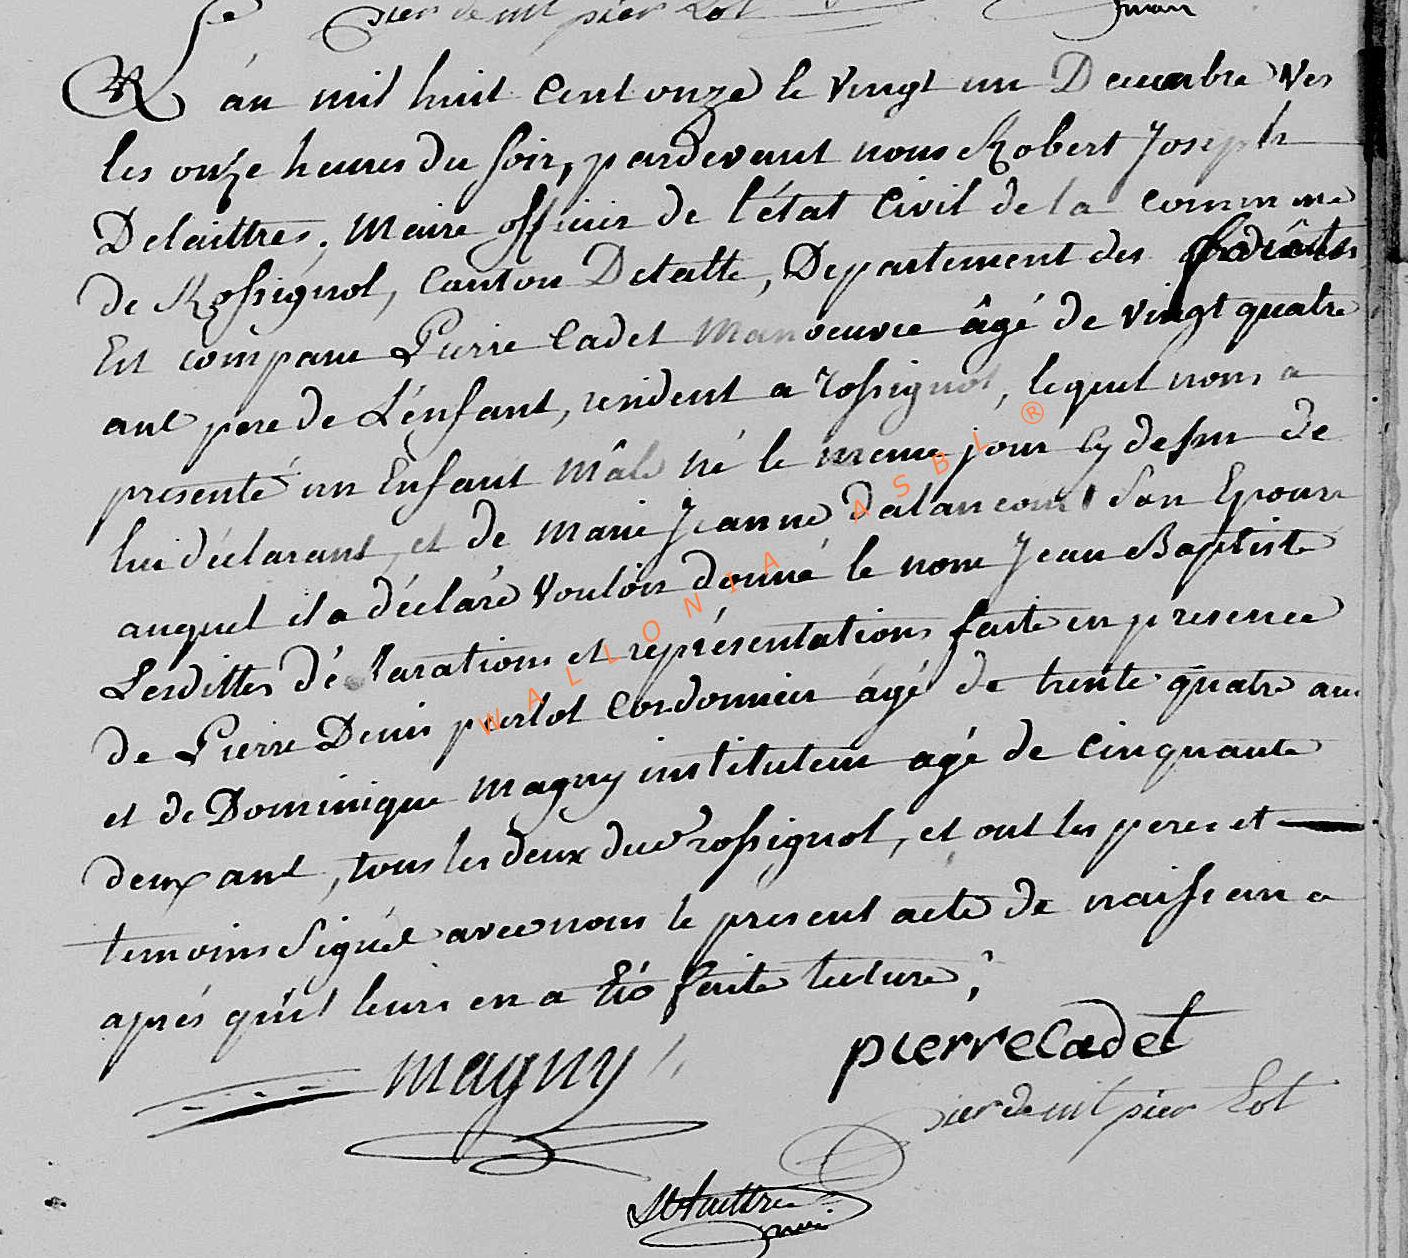 pier denit pier Lot
L'an mil huit Cent onze le vingt un Decembre Ver
les onze heures du soir, pardevant nous Robert Joseph
Delaittres, Maire officier de l'état Civil de la commune
de Rossignol, Canton Detalle, Departement des forêts
Est comparu Pierre Cadet Manoeuvre âgé de vingt quatre
ans pere de L'énfant, resident a rossignol, lequel nous a
presenté un Enfant Mâle né le meme jour cy desu de
lui déclarant, et de Marie Jeanne dalancourt Son Epouse
auquel il a déclaré vouloir donné le nom Jean Baptiste
Lesdittes déclarations et représentations faite en presence
de Pierre Denis pierlot Cordonnier agé de trente quatre ans
et de Dominique Magny instituteur agé de cinquante
deux ans, tous les deux due rossignol, et ont les peres et
temoins Signés avec nous le présent acte de naissance a
aprés qu'il leurs en a été faite lecture,
magny
pierre Cadet
pier denit pier Lot
Delaittre
maire
WALLONIA ASBL ®